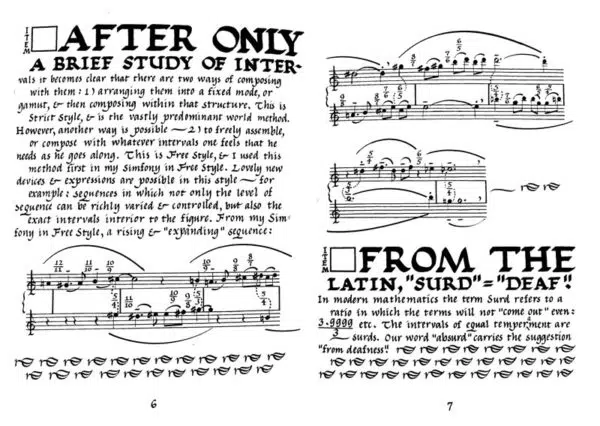 ITEM
AFTER ONLY
A BRIEF STUDY OF INTER-
vals it becomes clear that there are two ways of composing
with them: 1) arranging them into a fixed mode, or
gamut, & then composing within that structure. This is
Strict Style, & is the vastly predominant world method.
However, another way is possible — 2) to freely assemble,
or compose with whatever intervals one feels that he
needs as he goes along. This is Free Style, & I used this
method first in my Simfony in Free Style. Lovely new
devices & expressions are possible in this style — for
example: sequences in which not only the level of
sequence can be richly varied & controlled, but also the
exact intervals interior to the figure. From my Sim-
fony in Free Style, a rising & "expanding" sequence:
12/11 11/10 11/10 10/9 10/9 9/8 8/7
5/4 5/4 5/4
6
ITEM
FROM THE
LATIN, "SURD" = "DEAF".
In modern mathematics the term Surd refers to a
ratio in which the terms will not "come out" even:
3.9999 etc. The intervals of equal temperament are
3
surds. Our word "absurd" carries the suggestion
"from deafness".
7